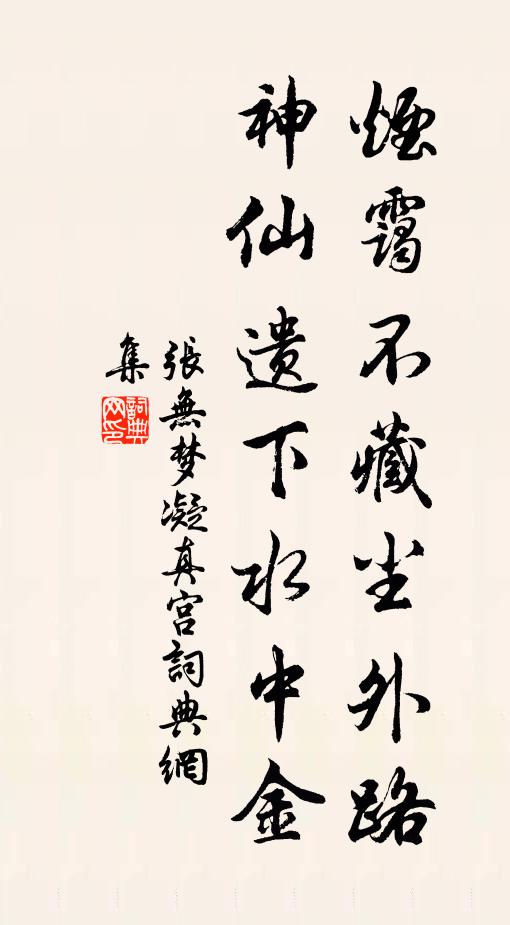 煙靄不藏尘外路
神仙遗下水中金
張無梦凝真宫詞典網
集
詞典
网印